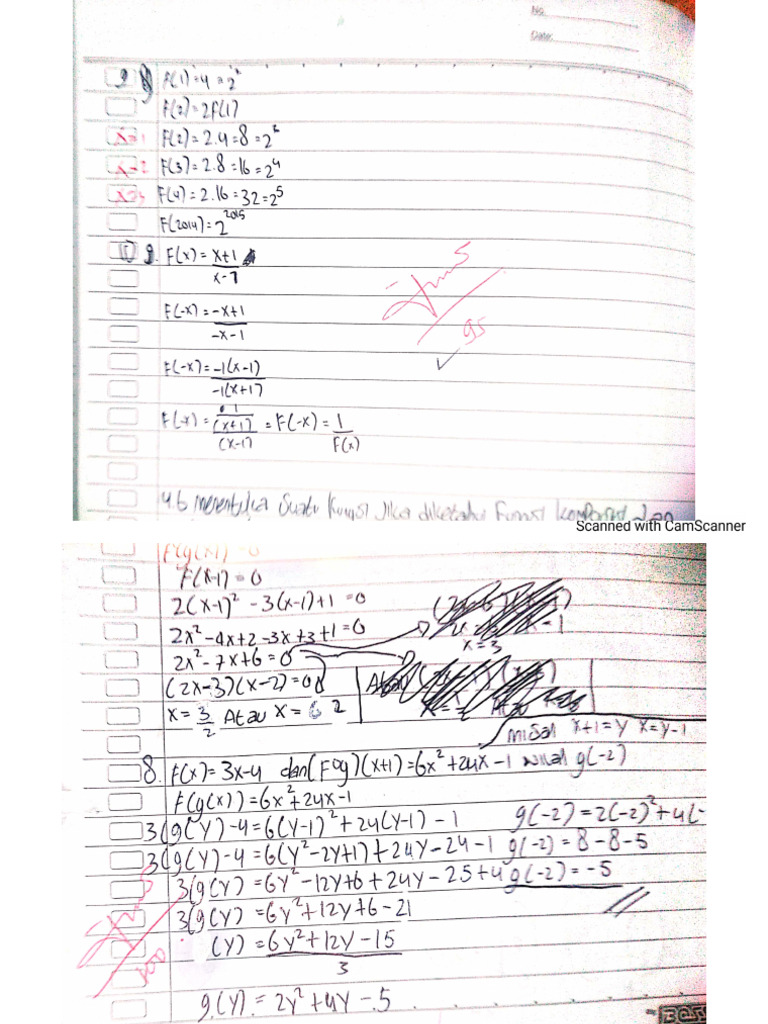 No
Date:
9 F(1)=4=2²
F(2)=2F(1)
x=1 F(2)=2.4=8=2⁶
x=2 F(3)=2.8=16=2⁴
x=3 F(4)=2.16=32=2⁵
F(2014)=2²⁰¹⁵
10 9. F(x)=x+1
x-1
F(-x)=-x+1
-x-1
F(-x)=-1(x-1)
-1(x+1)
F(-x)= 1 = F(-x)= 1
(x+1) F(x)
(x-1)
95
4.6 Suatu Fungsi Jika diketahui Fungsi komposisi dan
Scanned with CamScanner
F(x-1)=0
2(x-1)²-3(x-1)+1=0
2x²-4x+2-3x+3+1=0
x=3
2x²-7x+6=0
(2x-3)(x-2)=0
x=3/2 Atau x= 2
misal x+1=y x=y-1
8. F(x)=3x-4 dan (Fog)(x+1)=6x²+24x-1 nilai g(-2)
F(g(x))=6x²+24x-1
3(g(y)-4=6(y-1)²+24(y-1)-1 g(-2)=2(-2)²+4(-
3(g(y)-4=6(y²-2y+1)+24y-24-1 g(-2)=8-8-5
3(g(y)=6y²-12y+6+24y-25+4 g(-2)=-5
3(g(y)=6y²+12y+6-21
(y)=6y²+12y-15
3
100
g(y)=2y²+4y-5
BOSS